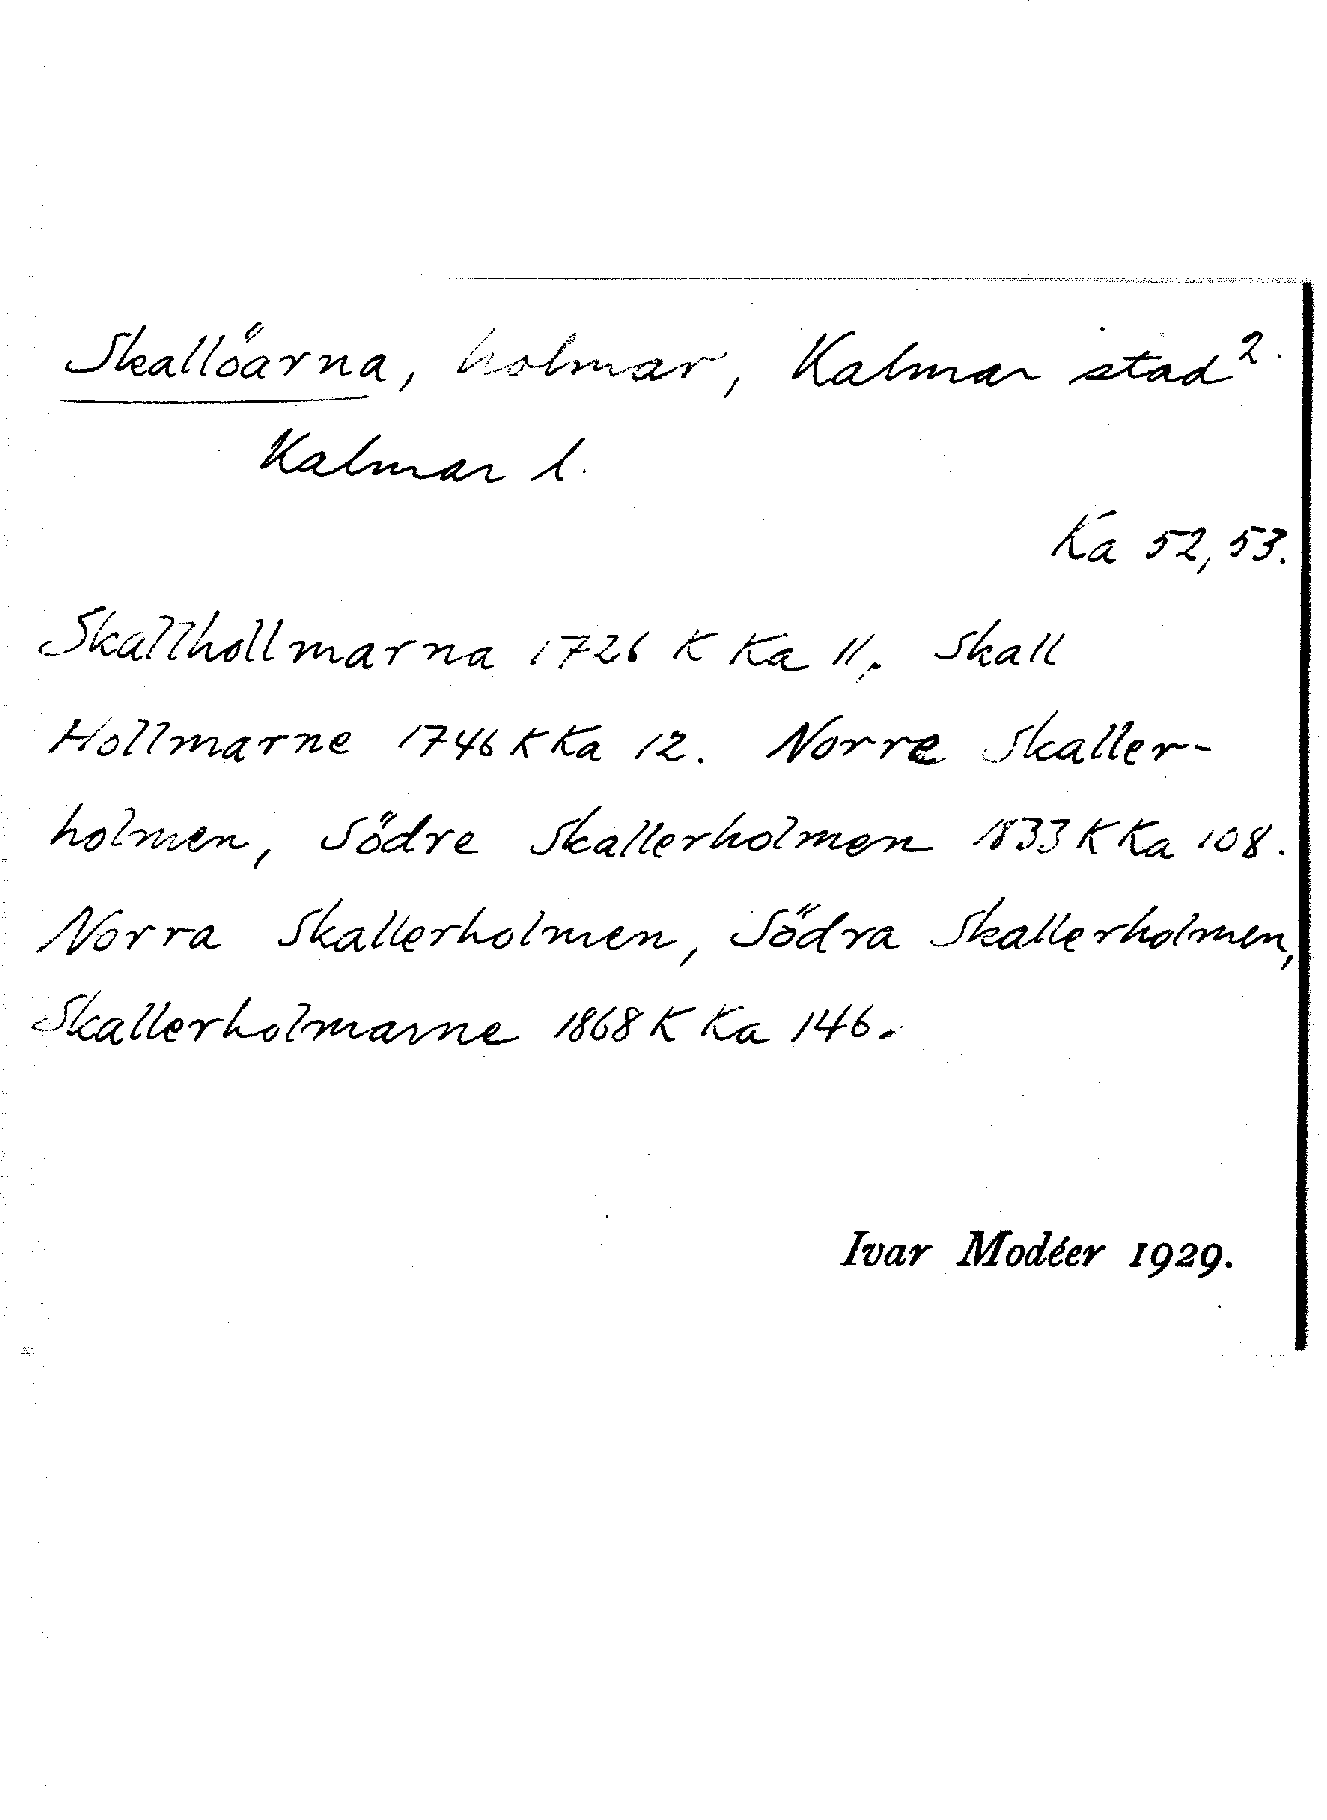 Skallöarna, holmar, Kalmar stad 2.
Kalmar l.
Ka 52, 53.
Skallhollmarna 1726 K Ka 11. Skall
Hollmarne 1746 K Ka 12. Norre Skaller-
holmen, Södre Skallerholmen 1833 K Ka 108.
Norra Skallerholmen, Södra Skallerholmen,
Skallerholmarne 1868 K Ka 146.
Ivar Modéer 1929.